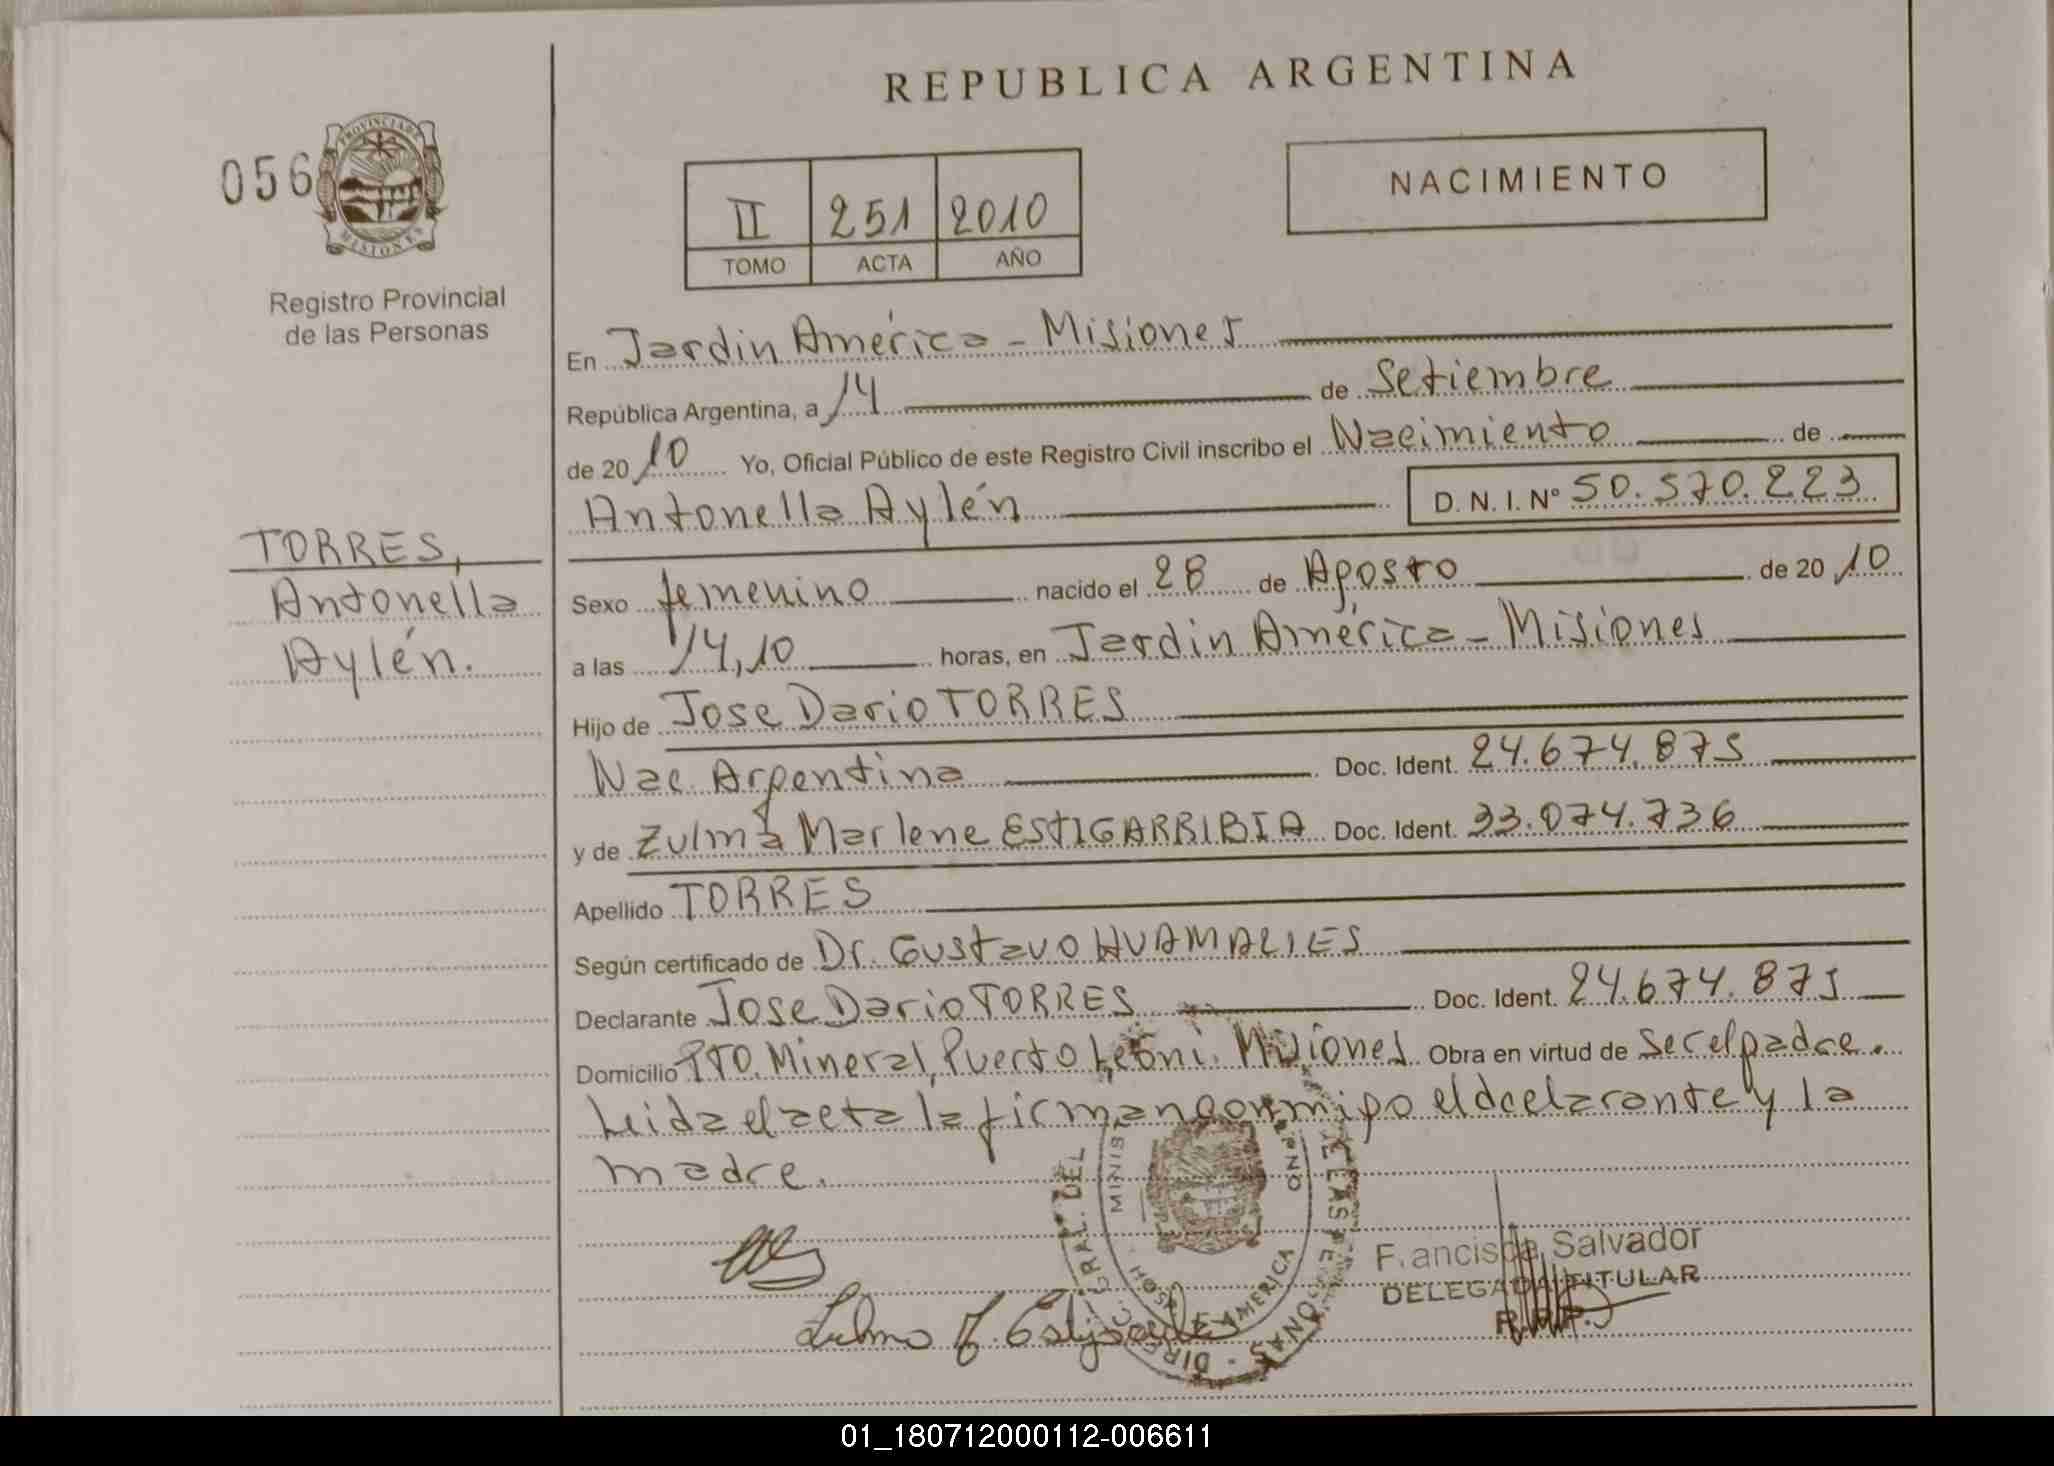 REPUBLICA ARGENTINA
056
PROVINCIA DE
MISIONES
Registro Provincial
de las Personas
II 251 2010
TOMO ACTA AÑO
NACIMIENTO
En Jardin América - Misiones
República Argentina, a 14 de Setiembre
de 2010 Yo, Oficial Público de este Registro Civil inscribo el Nacimiento de
Antonella Aylén D. N. I. Nº 50.570.223
TORRES,
Antonella
Aylén.
Sexo femenino nacido el 28 de Agosto de 2010
a las 14,10 horas, en Jardin América - Misiones
Hijo de Jose Dario TORRES
Nac. Argentina Doc. Ident. 24.674.875
y de Zulma Marlene ESTIGARRIBIA Doc. Ident. 33.074.736
Apellido TORRES
Según certificado de Dr. Gustavo HUAMALIES
Declarante Jose Dario TORRES Doc. Ident. 24.674.875
Domicilio PTO. Mineral, Puerto Leoni. Misiones Obra en virtud de ser el padre.
Leida el acta la firman conmigo el declarante y la
madre.
F.ancisca Salvador
DELEGADA TITULAR
R.P.P.
01_180712000112-006611